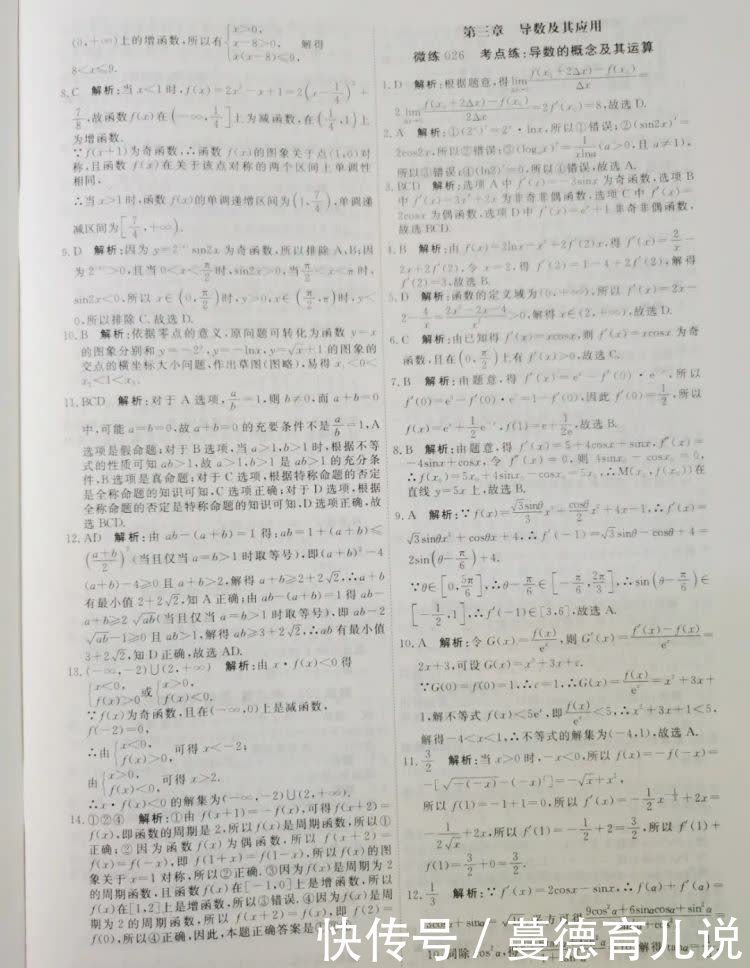 (0,+∞)上的增函数,所以有{x>0, x−8>0, x(x−8)≤9, 解得
8<x≤9.
8.C 解析:当x<1时,f(x)=2x²−x+1=2(x−1/4)²+
7/8,故函数f(x)在(−∞,1/4]上为减函数,在(1/4,1)上
为增函数.
∵f(x+1)为奇函数,∴函数f(x)的图象关于点(1,0)对
称,且函数f(x)在关于该点对称的两个区间上单调性
相同,
∴当x>1时,函数f(x)的单调递增区间为(1,7/4),单调递
减区间为[7/4,+∞).
9.D 解析:因为y=2^|x| sin2x为奇函数,所以排除A、B;因
为2^|x|>0,且当0<x<π/2时,sin2x>0,当π/2<x<π时,
sin2x<0,所以x∈(0,π/2)时,y>0,x∈(π/2,π)时,y<
0,所以排除C.故选D.
10.B 解析:依据零点的意义,原问题可转化为函数y=x
的图象分别和y=−2ˣ,y=−lnx,y=√x+1的图象的
交点的横坐标大小问题,作出草图(图略),易得x₁<0<
x₂<1<x₃.
11.BCD 解析:对于A选项,a/b=1,则b≠0,而a+b=0
中,可能a=b=0,故a+b=0的充要条件不是a/b=1,A
选项是假命题;对于B选项,当a>1,b>1时,根据不等
式的性质可知ab>1,故a>1,b>1是ab>1的充分条
件,B选项是真命题;对于C选项,根据特称命题的否定
是全称命题的知识可知,C选项正确;对于D选项,根据
全称命题的否定是特称命题的知识可知,D选项正确,故
选BCD.
12.AD 解析:由ab−(a+b)=1得:ab=1+(a+b)≤
((a+b)/2)²(当且仅当a=b>1时取等号),即(a+b)²−4
(a+b)−4≥0且a+b>2,解得a+b≥2+2√2,∴a+b
有最小值2+2√2,知A正确;由ab−(a+b)=1得ab−1=
a+b≥2√ab(当且仅当a=b>1时取等号),即ab−2
√ab−1≥0且ab>1,解得ab≥3+2√2,∴ab有最小值
3+2√2,知D正确,故选AD.
13.(−∞,−2)∪(2,+∞) 解析:由x·f(x)<0得
{x<0, f(x)>0 或{x>0, f(x)<0.
∵f(x)为奇函数,且在(−∞,0)上是减函数,
f(−2)=0,
∴由{x<0, f(x)>0 可得x<−2;
由{x>0, f(x)<0, 可得x>2.
∴x·f(x)<0的解集为(−∞,−2)∪(2,+∞).
14.①②④ 解析:①由f(x+1)=−f(x),可得f(x+2)=
f(x),即函数的周期是2,所以f(x)是周期函数,所以①
正确;②因为函数f(x)为偶函数,所以f(x+2)=
f(x)=f(−x),即f(1+x)=f(1−x),所以f(x)的图
象关于x=1对称,所以②正确.③因为f(x)是周期为2
的周期函数,且函数f(x)在[−1,0]上是增函数,所以
f(x)在[1,2]上是增函数,所以③错误.④因为f(x)是周
期为2的周期函数,所以f(x+2)=f(x),即f(2)=
f(0),所以④正确,因此,本题正确答案是
第三章 导数及其应用
微练026 考点练:导数的概念及其运算
1.D 解析:根据题意,得lim f(x₀+2Δx)−f(x₀)/Δx =
2lim f(x₀+2Δx)−f(x₀)/2Δx =2f′(x₀)=8,故选D.
2.A 解析:①(2ˣ)′=2ˣ·lnx,所以①错误;②(sin2x)′=
2cos2x,所以②错误;③(logₐx)′=1/xlna(a>0,且a≠1),
所以③错误;④(ln2)′=0,所以④错误,故选A.
3.BCD 解析:选项A中f′(x)=−3sinx为奇函数,选项B
中f′(x)=3x²+2x为非奇非偶函数,选项C中f′(x)=
2cosx为偶函数,选项D中f′(x)=eˣ+1非奇非偶函数,
故选BCD.
4.B 解析:由f(x)=2lnx−x²+2f′(2)x,得f′(x)=2/x−
2x+2f′(2),令x=2,得f′(2)=1−4+2f′(2),解得
f′(2)=3,故选B.
5.D 解析:函数的定义域为(0,+∞),所以f′(x)=2x−
2−4/x=(2x²−2x−4)/x>0,解得x∈(2,+∞),故选D.
6.C 解析:由已知得f′(x)=xcosx,则f′(x)=xcosx为奇
函数,且在(0,π/2)上有f′(x)>0,故选C.
7.B 解析:由题意,得f′(x)=eˣ−f′(0)·e⁻ˣ,所以
f′(0)=e⁰−f′(0)·e⁰=1−f′(0),因此f′(0)=1/2,所以
f(x)=eˣ+1/2e⁻ˣ,f(1)=e+1/2e,故选B.
8.B 解析:由题意,得f′(x)=5+4cosx+sinx,f″(x)=
−4sinx+cosx,令f″(x)=0,则4sinx₀−cosx₀=0,
∴f(x₀)=5x₀+4sinx₀−cosx₀=5x₀,∴M(x₀,f(x₀))在
直线y=5x上,故选B.
9.A 解析:∵f(x)=√3sinθ/3 x³+cosθ/2 x²+4x−1,∴f′(x)=
√3sinθx²+cosθx+4,∴f′(−1)=√3sinθ−cosθ+4=
2sin(θ−π/6)+4.
∵θ∈[0,5π/6],∴θ−π/6∈[−π/6,2π/3],∴sin(θ−π/6)∈
[−1/2,1],∴f′(−1)∈[3,6],故选A.
10.A 解析:令G(x)=f(x)/eˣ,则G′(x)=(f′(x)−f(x))/eˣ=
2x+3,可设G(x)=x²+3x+c.
∵G(0)=f(0)=1,∴c=1,∴G(x)=f(x)/eˣ=x²+3x+
1,解不等式f(x)<5eˣ,即f(x)/eˣ<5,∴x²+3x+1<5,
解得−4<x<1,∴不等式的解集为(−4,1),故选A.
11.3/2 解析:当x>0时,−x<0,所以f(x)=−f(−x)=
−[√−(−x)−(−x)²]=−√x+x²,
所以f(1)=−1+1=0,所以f′(x)=−1/2 x^(−1/2)+2x=
−1/(2√x)+2x,所以f′(1)=−1/2+2=3/2,所以f′(1)+
f(1)=3/2+0=3/2.
12.1/3 解析:∵f′(x)=2cosx−sinx,∴f(α)+f′(α)=
快传号/蔓德育儿说